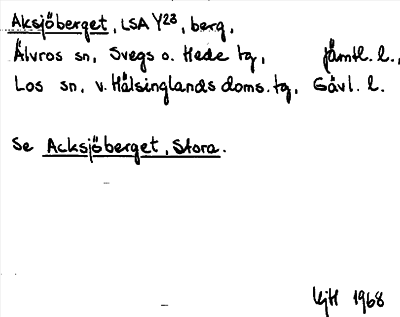 Aksjöberget, LSA Y28, berg,
Älvros sn, Svegs o. Hede tg, Jämtl. l.,
Los sn, v. Hälsinglands doms. tg, Gävl. l.
Se Acksjöberget, Stora.
1968